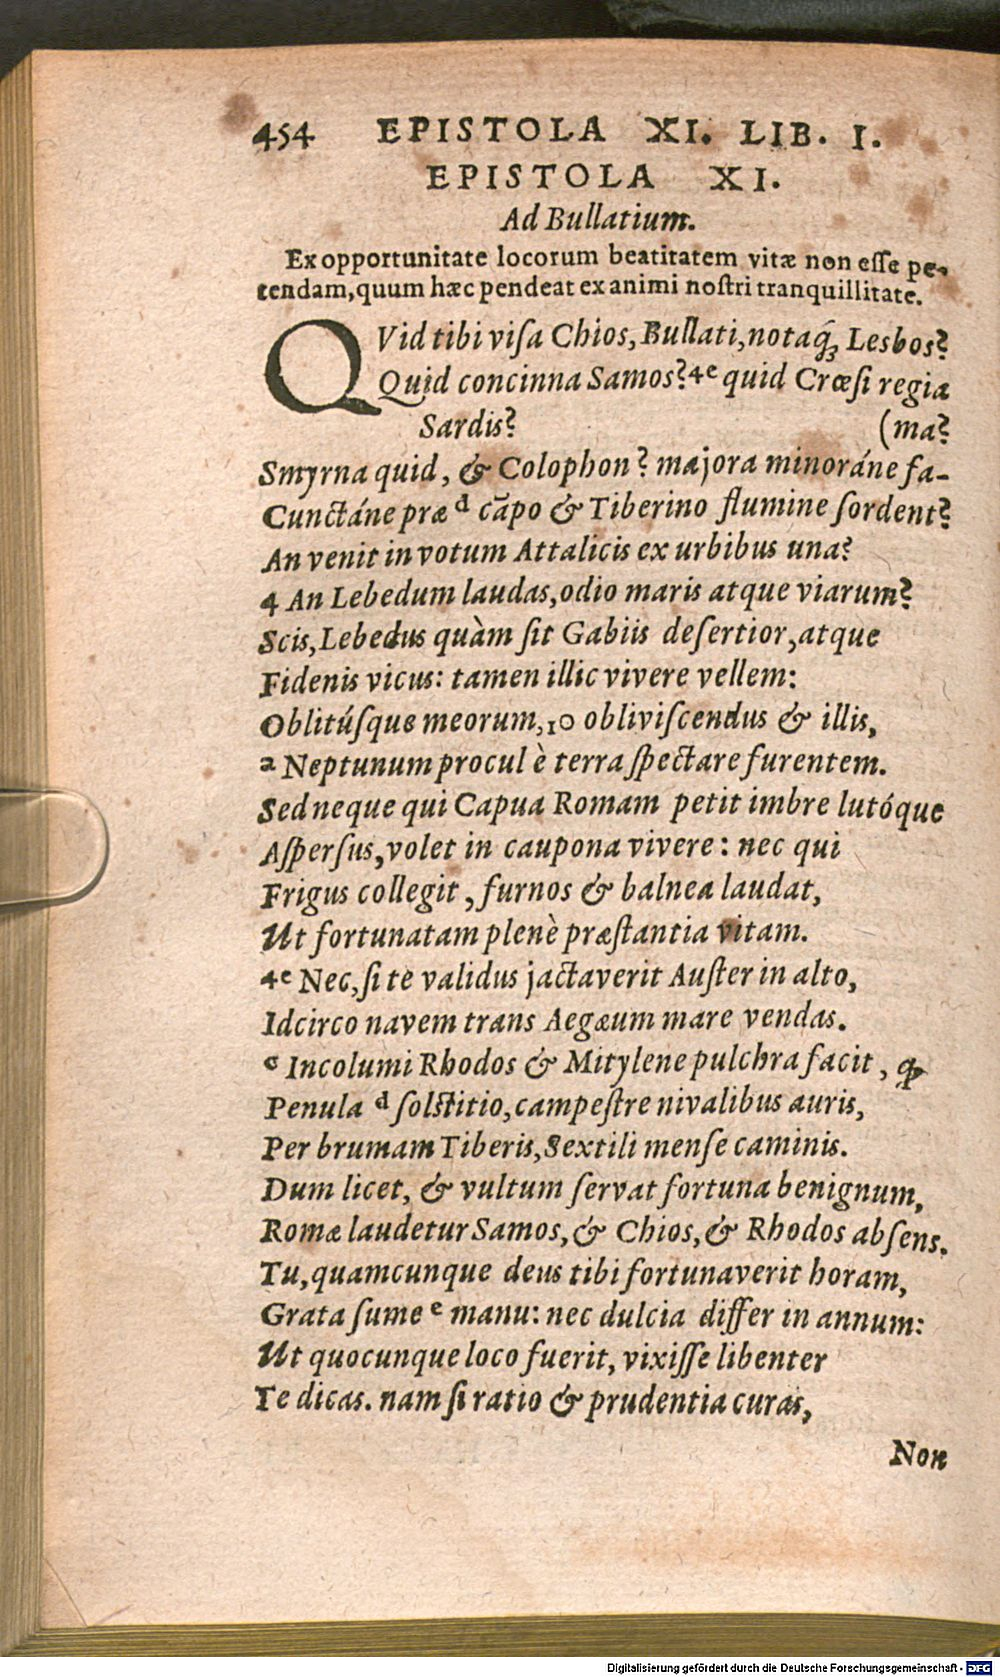 454 EPISTOLA XI. LIB. I.
EPISTOLA XI.
Ad Bullatium.
Ex opportunitate locorum beatitatem vitæ non eſſe pe-
tendam, quum hæc pendeat ex animi noſtri tranquillitate.
QVid tibi viſa Chios, Bullati, notaq́; Lesbos?
Quid concinna Samos? 4e quid Crœſi regia
Sardis? (ma?
Smyrna quid, & Colophon? majora minoráne fa-
Cunctáne præ d cãpo & Tiberino flumine ſordent?
An venit in votum Attalicis ex urbibus una?
4 An Lebedum laudas, odio maris atque viarum?
Scis, Lebedus quàm ſit Gabiis deſertior, atque
Fidenis vicus: tamen illic vivere vellem:
Oblitúſque meorum, 10 obliviſcendus & illis,
a Neptunum procul è terra ſpectare furentem.
Sed neque qui Capua Romam petit imbre lutóque
Aſperſus, volet in caupona vivere: nec qui
Frigus collegit, furnos & balnea laudat,
Ut fortunatam plenè præſtantia vitam.
4e Nec, ſi te validus jactaverit Auſter in alto,
Idcirco navem trans Aegæum mare vendas.
c Incolumi Rhodos & Mitylene pulchra facit, ꝙ
Penula d ſolſtitio, campeſtre nivalibus auris,
Per brumam Tiberis, Sextili menſe caminis.
Dum licet, & vultum ſervat fortuna benignum,
Romæ laudetur Samos, & Chios, & Rhodos abſens.
Tu, quamcunque deus tibi fortunaverit horam,
Grata ſume e manu: nec dulcia differ in annum:
Ut quocunque loco fuerit, vixiſſe libenter
Te dicas. nam ſi ratio & prudentia curas,
Non
Digitalisierung gefördert durch die Deutsche Forschungsgemeinschaft - DFG